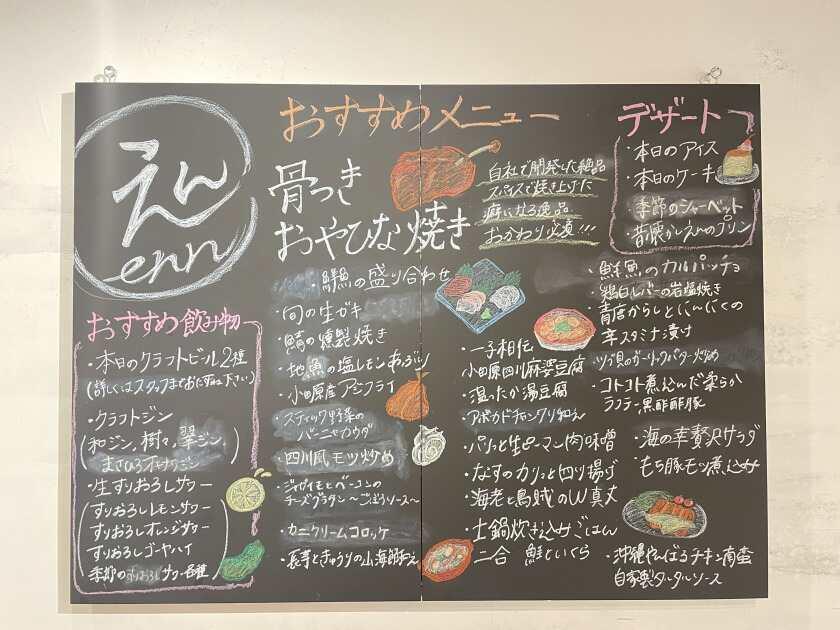 えん
enn
おすすめ飲み物
・本日のクラフトビール2種
(詳しくはスタッフまでおたずね下さい)
・クラフトジン
(和ジン、樹々、翠ジン、
まさひろオキナワジン)
・生すりおろしサワー
すりおろしレモンサワー
すりおろしオレンジサワー
すりおろしゴーヤハイ
季節のすりおろしサワー各種
おすすめメニュー
骨つき
おやひな焼き
自社で開発した絶品
スパイスで焼き上げた
癖になる逸品
おかわり必須!!!
・鮮魚の盛り合わせ
・旬の生ガキ
・鯖の燻製焼き
・地魚の塩レモンあぶり
・小田原産アジフライ
・スティック野菜の
バーニャカウダ
・四川風モツ炒め
・ジャガイモとベーコンの
チーズグラタン〜ごぼうソース〜
・カニクリームコロッケ
・長芋ときゅうりの山海部和え
・一子相伝
小田原四川麻婆豆腐
・温ったか湯豆腐
・アボカドチャンジャ和え
・パリッと生ピーマン肉味噌
・なすのカリッと四川揚げ
・海老と烏賊のW真丈
・土鍋炊き込みごはん
二合 鮭といくら
デザート
・本日のアイス
・本日のケーキ
・季節のシャーベット
・昔懐かしえんのプリン
・鮮魚のカルパッチョ
・鶏白レバーの岩塩焼き
・青唐からしとにんにくの
辛スタミナ漬け
・ツブ貝のガーリックバター炒め
・コトコト煮込んだ柔らか
ラフテー黒酢酢豚
・海の幸贅沢サラダ
・もち豚モツ煮込み
・沖縄やんばるチキン南蛮
自家製タルタルソース